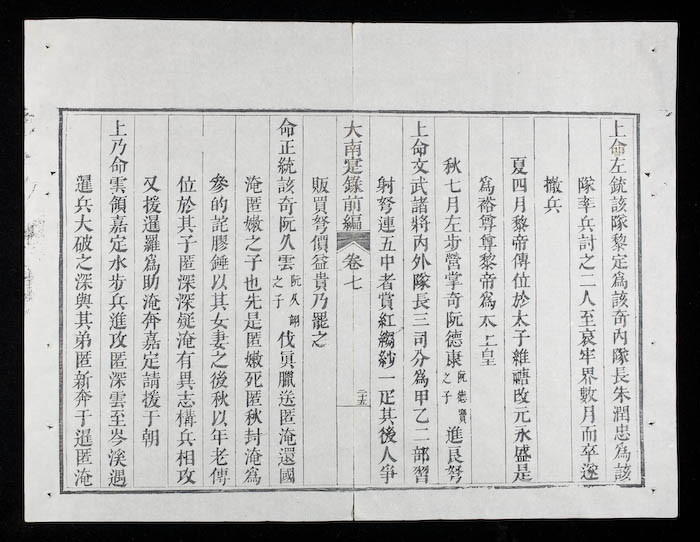 上命左銃該隊黎定為該奇內隊長朱潤忠為該
隊率兵討之二人至哀牢界數月而卒遂
撤兵
夏四月黎帝傳位於太子維禟改元永盛是
為裕尊尊黎帝為太上皇
秋七月左步營掌奇阮德康阮德寶之子進良弩
上命文武諸將內外隊長三司分為甲乙二部習
射弩連五中者賞紅縐紗一疋其後人爭
大南寔錄前編 卷七 二十五
販買弩價益貴乃罷之
命正統該奇阮久雲阮久翊之子伐真臘送匿淹還國
淹匿嫩之子也先是匿嫩死匿秋封淹為
參的詫膠錘以其女妻之後秋以年老傳
位於其子匿深深疑淹有異志構兵相攻
又援暹羅為助淹奔嘉定請援于朝
上乃命雲領嘉定水步兵進攻匿深雲至岑溪遇
暹兵大破之深與其弟匿新奔于暹匿淹